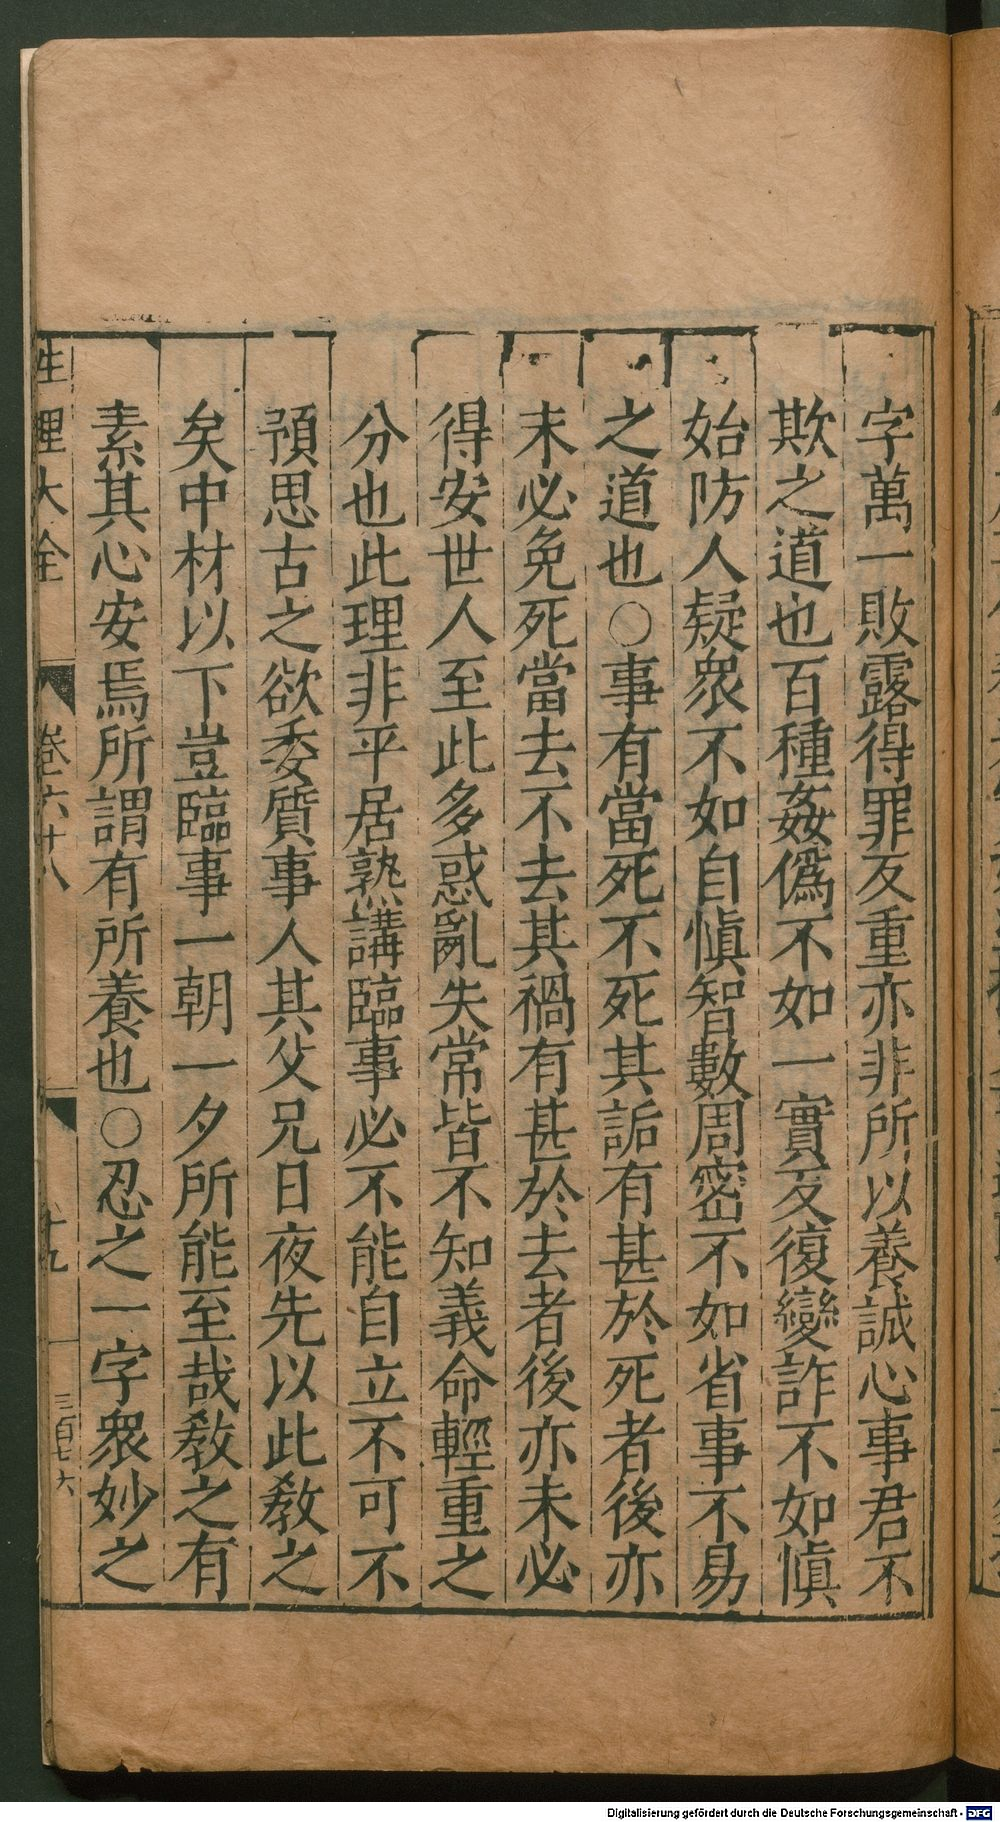 字萬一敗露得罪反重亦非所以養誠心事君不
欺之道也百種姦僞不如一實反復變詐不如慎
始防人疑衆不如自慎智數周密不如省事不易
之道也○事有當死不死其詬有甚於死者後亦
未必免死當去不去其禍有甚於去者後亦未必
得安世人至此多惑亂失常皆不知義命輕重之
分也此理非平居熟講臨事必不能自立不可不
預思古之欲委質事人其父兄日夜先以此教之
矣中材以下豈臨事一朝一夕所能至哉教之有
素其心安焉所謂有所養也○忍之一字衆妙之
性理大全 卷六十八 十九 三百七六
Digitalisierung gefördert durch die Deutsche Forschungsgemeinschaft - DFG